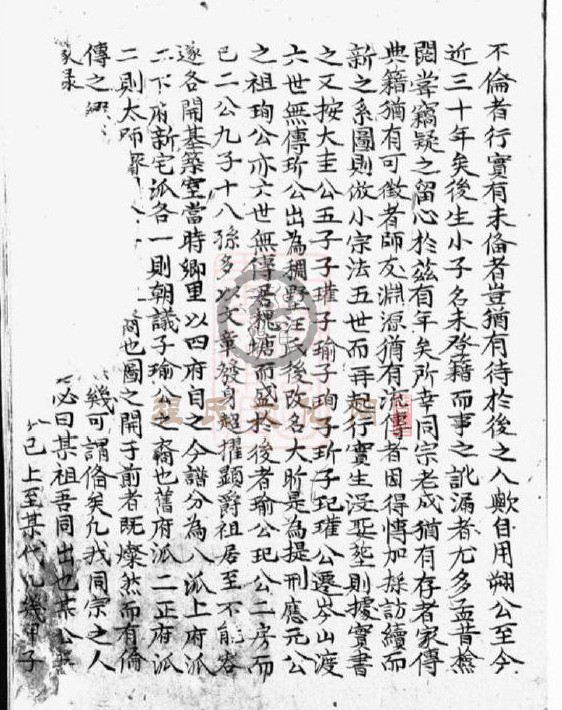 不倫者行實有未備者豈猶有待於後之人歟自用朔公至今
近三十年矣後生小子名未登籍而事之訛漏者尤多孟昔撿
閱嘗竊疑之留心於茲有年矣所幸同宗老成猶有存者家傳
典籍猶有可徵者師友淵源猶有流傳者因得博加採訪續而
新之系圖則倣小宗法五世而再起行實生沒娶塟則據實書
之又按大圭公五子子瓘子瑜子珣子玠子玘瓘公遷岑山渡
六世無傳玠公出為稠墅汪氏後改名大昕是為提刑應元公
之祖珣公亦六世無傳居槐塘而盛於後者瑜公玘公二房而
已二公九子十八孫多以文章發身超擢顯爵祖居至不能容
遂各開基築室當時鄉里以四府目之今譜分為八派上府派
二下府新宅派各一則朝議子瑜公之裔也舊府派二正府派
二則太師 裔也圖之開于前者既燦然而有倫
傳之 幾可謂俻矣凡我同宗之人
必曰某祖吾同出也某公吾
已上至某代凡幾甲子